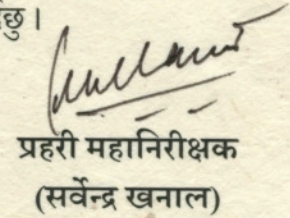 छु।
प्रहरी महानिरीक्षक
(सर्वेन्द्र खनाल)